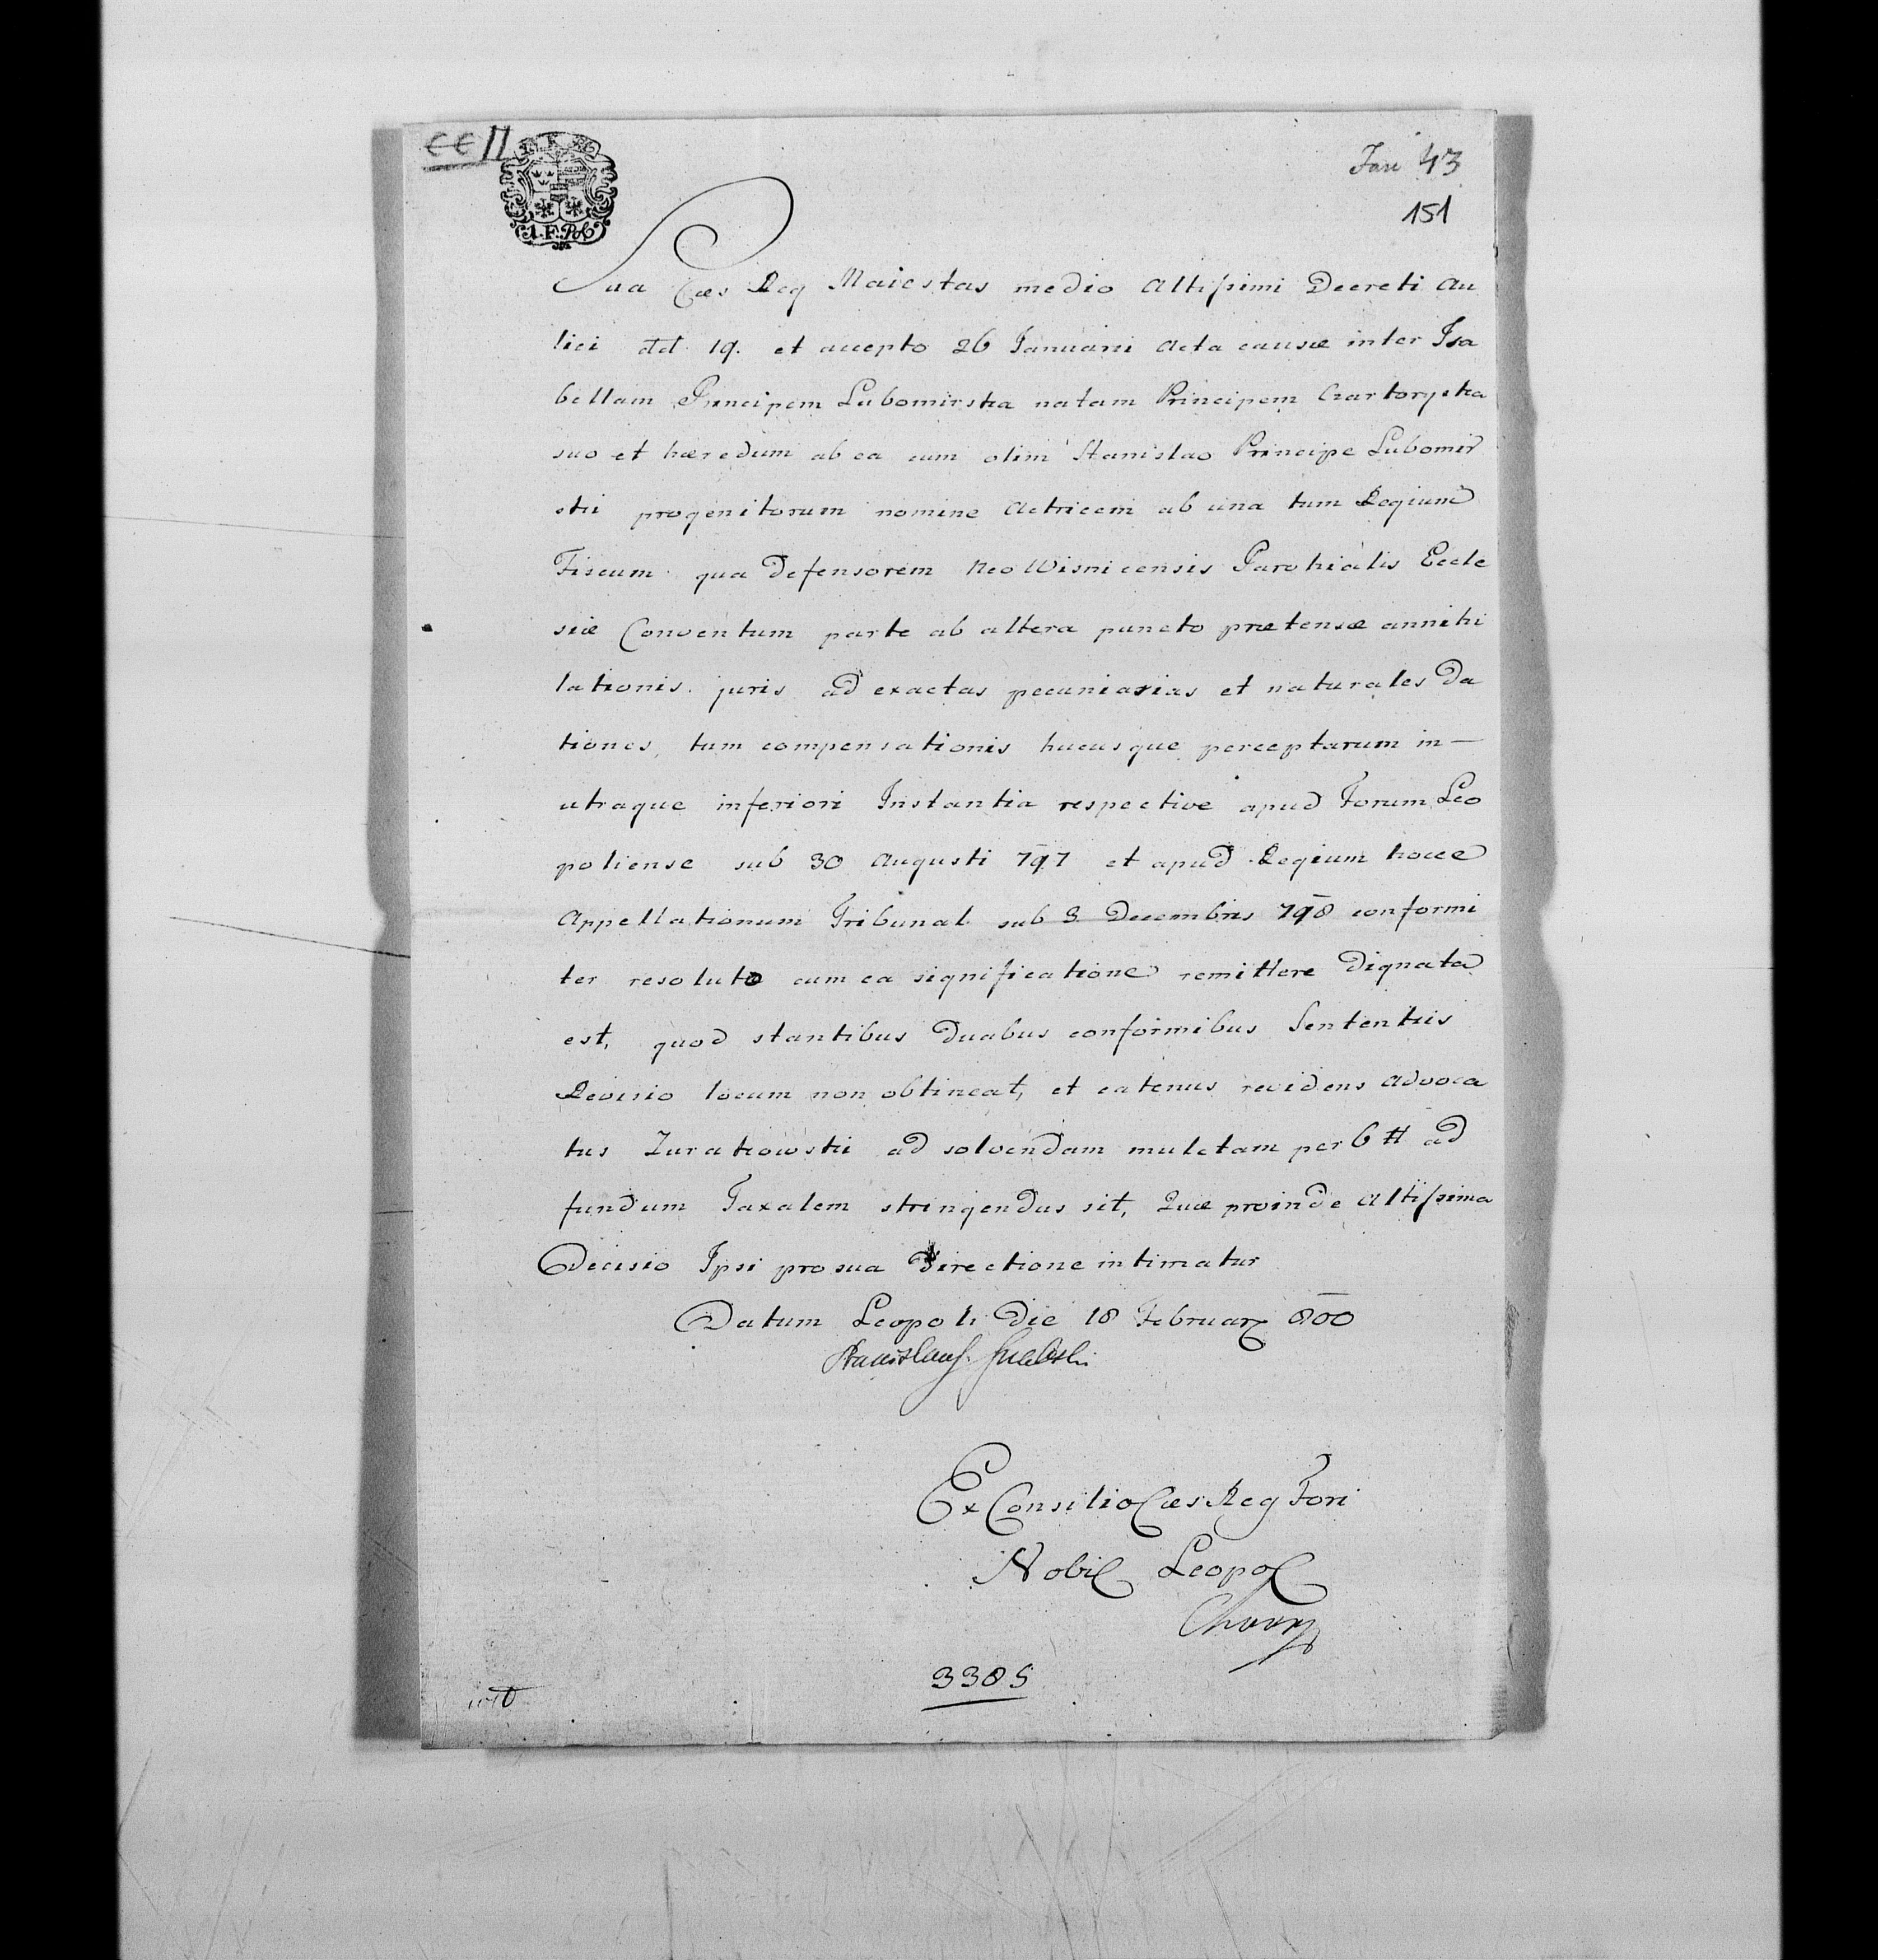 €€ II
Fasc 43
151
Sua Cæs Reg Maiestas medio Altissimi Decreti Au
lici dtt 19. et accepto 26 Januarii Acta causæ inter Isa
bellam Principem Lubomirska natam Principem Czartoryska
suo et hæredum ab ea cum olim Stanislao Principe Lubomir
ski progenitorum nomine Actricem ab una tum Regium
Fiscum qua Defensorem Neo Wisnicensis Parohialis Eccle
siæ Conventum parte ab altera puncto prætensæ annihi
lationis juris ad exactas pecuniarias et naturales Da
tiones, tum compensationis hucusque perceptarum in—
utraque inferiori Instantia respective apud Forum Leo
poliense sub 30 Augusti 797 et apud Regium hocce
Appellationum Tribunal sub 3 Decembris 798 conformi
ter resoluto cum ea significatione remittere Dignata
est, quod stantibus Duabus conformibus Sententiis
Revisio locum non obtineat, et eatenus revidens Advoca
tus Zurakowski ad solvendam mulctam per 6 # ad
fundum Taxalem stringendus sit, Quæ proinde Altissima
Decisio Ipsi pro sua Directione intimatur
Datum Leopoli Die 18 Februar 800
Ex Consilio Cæs Reg Fori
Nobil Leopol
3385